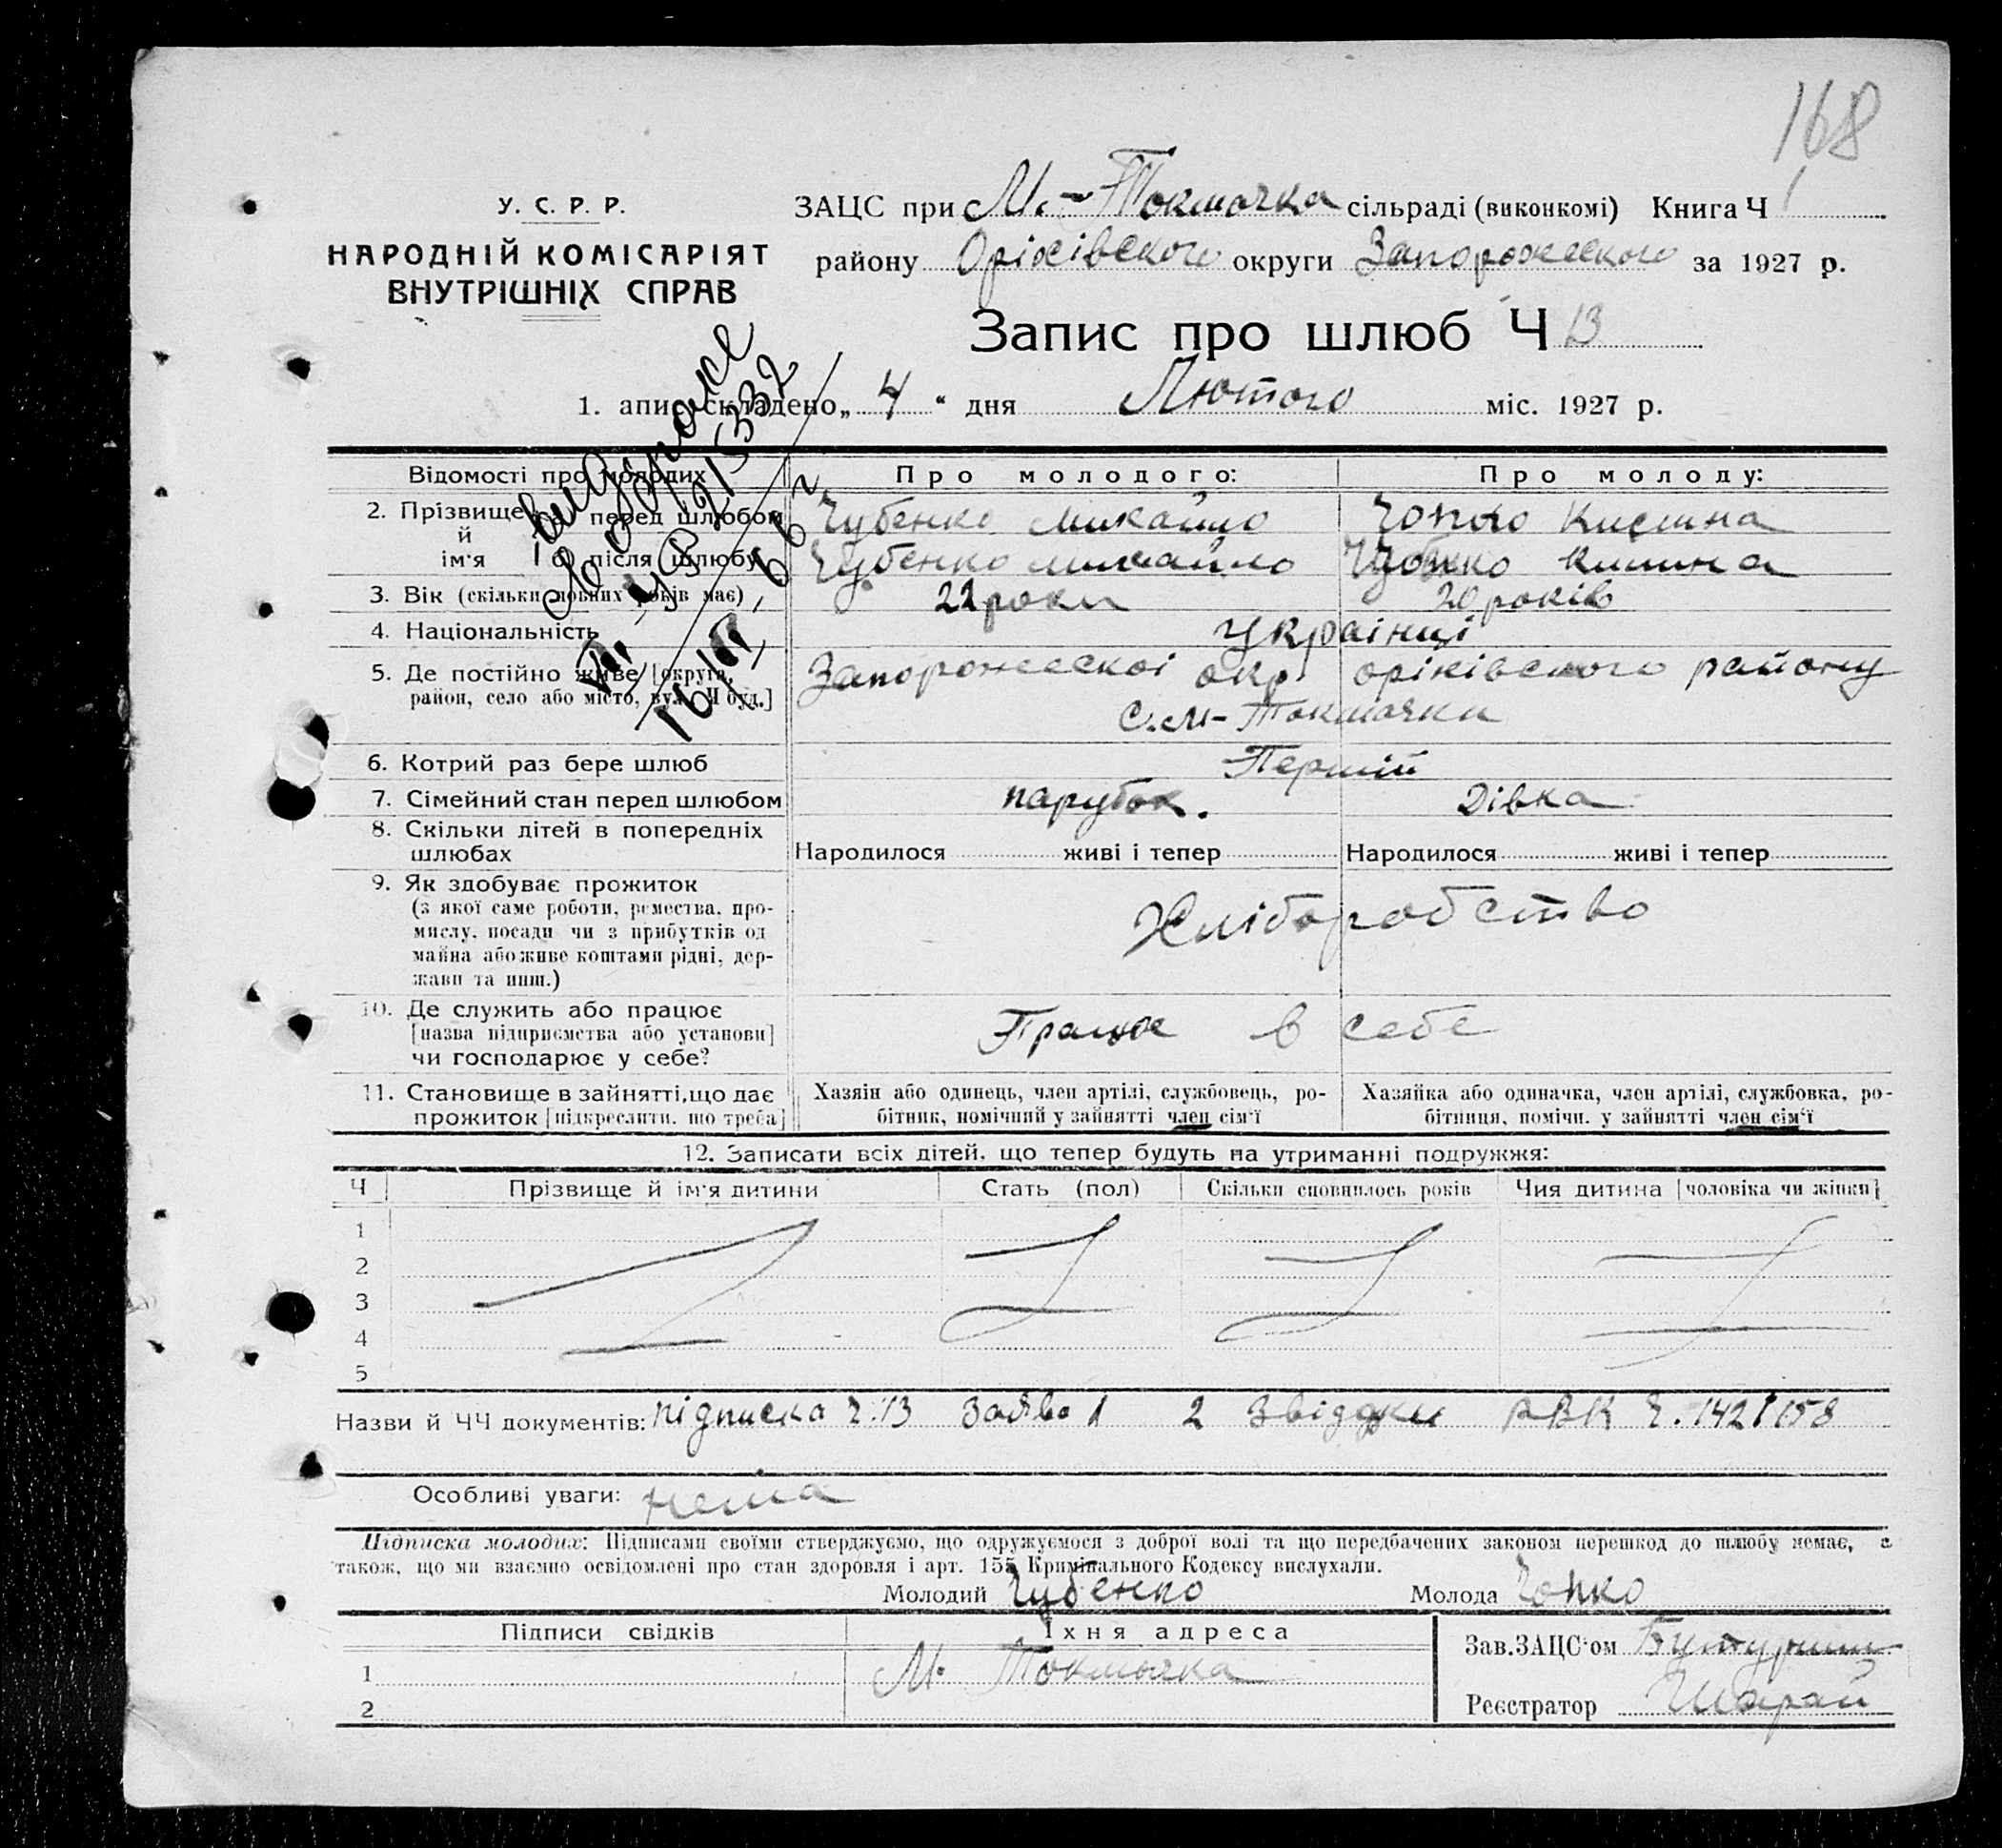 168
У. С. Р. Р.
НАРОДНІЙ КОМІСАРІЯТ
ВНУТРІШНІХ СПРАВ
ЗАЦС при М.-Токмачка сільраді (виконкомі) Книга Ч 1
району Оріхівського округи Запорожського за 1927 р.
Запис про шлюб Ч 13
1. апис складено „ 4 “ дня Лютого міс. 1927 р.
Відомості про молодих
Про молодого:
Про молоду:
2. Прізвище й ім'я
перед шлюбом
Чубенко Михайло
Чопко Килина
після шлюбу
Чубенко Михайло
Чубенко Килина
3. Вік (скільки повних років має)
22 роки
20 років
4. Національність
Українці
5. Де постійно живе [округа,
район, село або місто, вул. Ч буд.]
Запорожськоі окр. оріхівського району
С. М-Токмачки
6. Котрий раз бере шлюб
Перший
7. Сімейний стан перед шлюбом
парубок.
Дівка
8. Скільки дітей в попередніх
шлюбах
Народилося живі і тепер
Народилося живі і тепер
9. Як здобуває прожиток
(з якої саме роботи, ремества, про-
мислу, посади чи з прибутків од
майна або живе коштами рідні, дер-
жави та инш.)
Хліборобство
10. Де служить або працює
[назва підприємства або установи]
чи господарює у себе?
Працює в себе
11. Становище в зайнятті, що дає
прожиток [підкреслити, що треба]
Хазяін або одинець, член артілі, службовець, ро-
бітник, помічний у зайнятті член сім'ї
Хазяйка або одиначка, член артілі, службовка, ро-
бітниця, помічн. у зайнятті член сім'ї
12. Записати всіх дітей, що тепер будуть на утриманні подружжя:
Ч
Прізвище й ім'я дитини
Стать (пол)
Скільки сповнилось років
Чия дитина [чоловіка чи жінки]
1
2
3
4
5
Назви й ЧЧ документів: підписка ч. 13 Заява 1 2 Звідки РВК Ч. 142 158
Особливі уваги: нема
Підписка молодих: Підписами своїми стверджуємо, що одружуємося з доброї волі та що передбачених законом перешкод до шлюбу немає, а
також, що ми взаємно освідомлені про стан здоровля і арт. 155 Кримінального Кодексу вислухали.
Молодий Чубенко
Молода Чопко
Підписи свідків
Їхня адреса
1
М. Токмачка
2
Зав. ЗАЦС'ом
Реєстратор Шарай